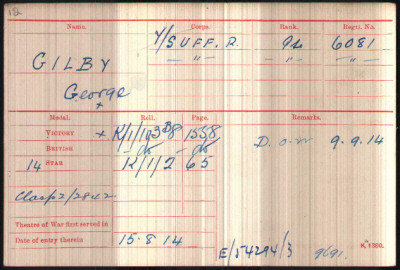 12
Name. Corps. Rank. Regtl. No.
Y/SUFF. R. Pte 6081
GILBY — " — " — " —
George
x
Medal. Roll. Page. Remarks.
VICTORY x K/1/103B8 1558
BRITISH — do — — do — D. o. w 9.9.14
14 STAR K/1/2 65
Clasp 2/2842
Theatre of War first served in
Date of entry therein 15.8.14
E/54294/3 9691.
K. 1380.